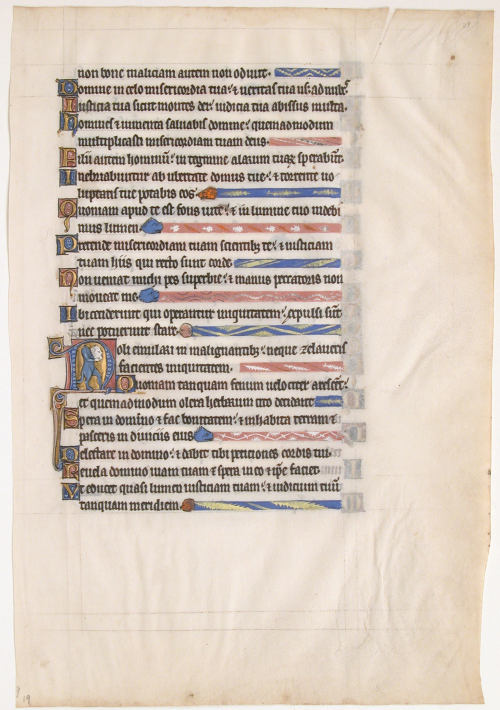 non bone maliciam autem non odiuit.
Domine in celo misericordia tua: & ueritas tua usq; ad nubes.
Iusticia tua sicut montes dei: iudicia tua abissus multa.
Homines & iumenta saluabis domine: quemadmodum
multiplicasti misericordiam tuam deus.
Filii autem hominum: in tegmine alarum tuarum sperabunt.
Inebriabuntur ab ubertate domus tue: & torrente uo
luptatis tue potabis eos.
Quoniam apud te est fons uite: & in lumine tuo uidebi
mus lumen.
Pretende misericordiam tuam scientibus te: & iusticiam
tuam hiis qui recto sunt corde.
Non ueniat michi pes superbie: & manus peccatoris non
moueat me.
Ibi ceciderunt qui operantur iniquitatem: expulsi sunt
nec potuerunt stare.
Noli emulari in malignantibus: neque zelaueris
facientes iniquitatem.
Quoniam tanquam fenum uelociter arescent:
et quemadmodum olera herbarum cito decident.
Spera in domino & fac bonitatem: & inhabita terram &
pasceris in diuiciis eius.
Delectare in domino: & dabit tibi peticiones cordis tui.
Reuela domino uiam tuam & spera in eo & ipse faciet.
Et educet quasi lumen iusticiam tuam: & iudicium tuum
tanquam meridiem.
19